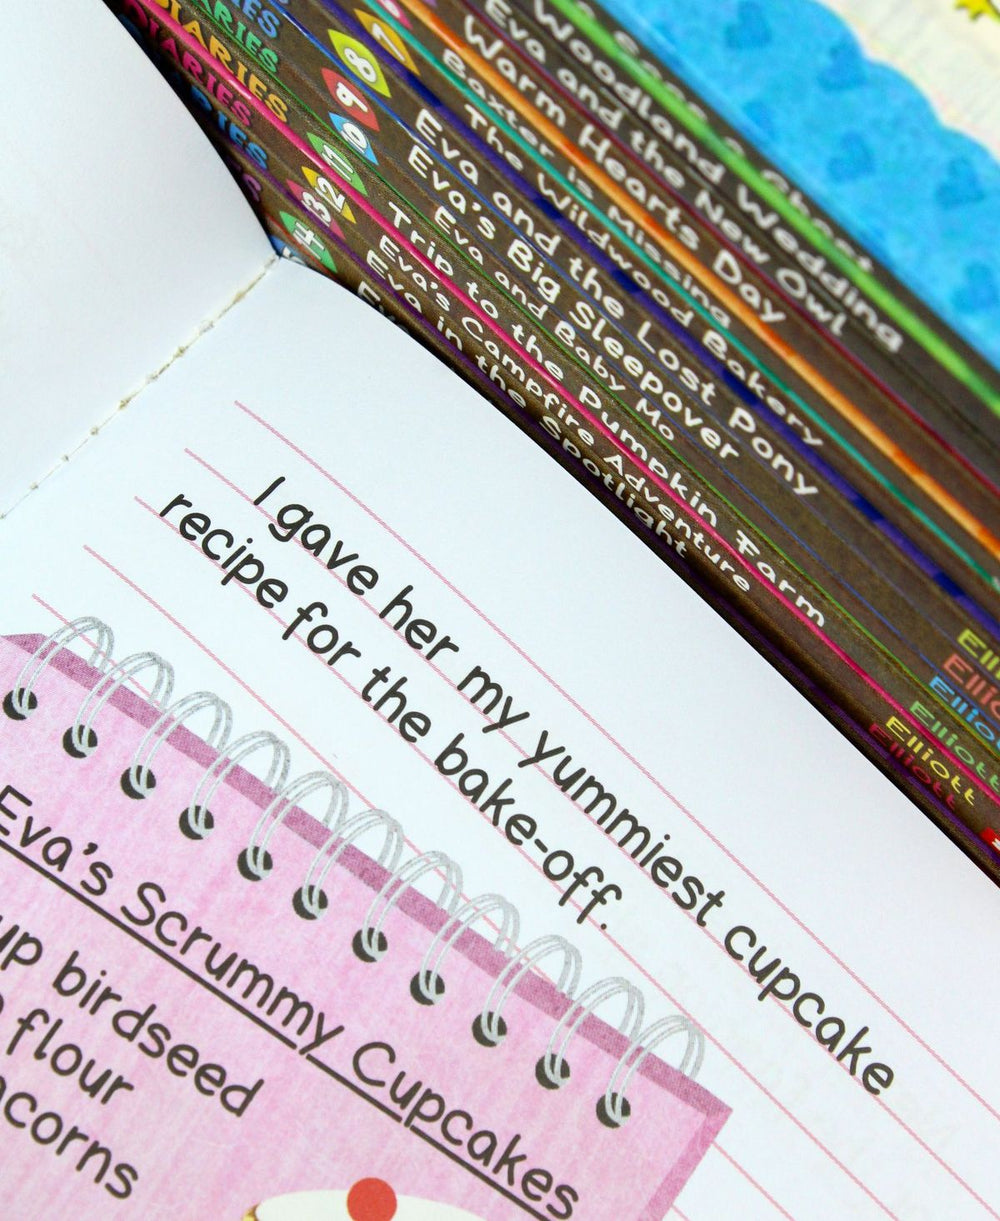 DIARIES
DIARIES
8
9
Eva and the New Owl
Woodland Wedding
Warm Hearts Day
Baxter is Missing
The Wildwood Bakery
Eva and the Lost Pony
Eva's Big Sleepover
Eva and Baby Mo
Trip to the Pumpkin Farm
Eva's Campfire Adventure
Eva in the Spotlight
Elliott
Elliott
Elliott
Elliott
I gave her my yummiest cupcake
recipe for the bake-off.
Eva's Scrummy Cupcakes
birdseed
flour
acorns